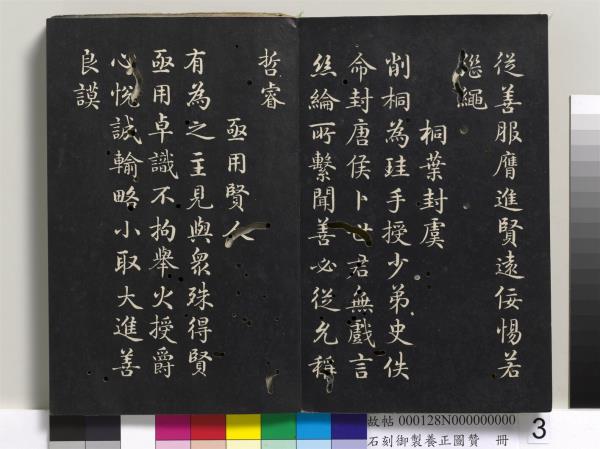 從善服膺進賢遠佞惕若
繼繩
桐葉封虞
削桐為珪手授少弟史佚
命封唐侯卜世君無戲言
絲綸所繫聞善必從允稱
哲睿
亟用賢人
有為之主見與衆殊得賢
亟用卓識不拘舉火授爵
心悅誠輸略小取大進善
良謨
故帖 000128N000000000
石刻御製養正圖贊 冊
3